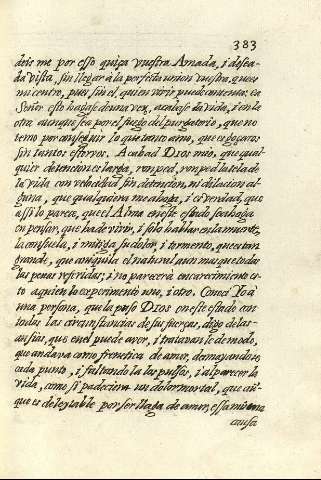 383
deis me por esso quiça vuestra Amada, i desea-
da vista, sin llegar à la perfecta union vuestra, que es
mi centro, pues sin el, quien vivir puede contento; ea
Señor esto hagase de una vez, acabese da vida, i en la
otra aunque sea por el fuego del purgatorio, que no
temo por conseguir lo que tanto amo, que es gozaros
sin tantos estorvos. Acabad Dios mio, que qual
quier detencion es larga, romped, romped la tela de
la vida con velocidad sin detencion, ni dilacion al-
guna, que qualquiera me alarga, i es verdad, que
assi lo parece, que el Alma en este estado se ahoga
en pensar, que ha de vivir, i solo hablar en la muerte,
la consuela, i mitiga su dolor, i tormento, que es tan
grande, que aniquila el natural aun mas que todas
las penas referidas, i no parecerà encarecimiento es-
to a quien lo experimento uno, i otro. Conoci Yo à
una persona, que la puso Dios en este estado con
todas las circunstancias de sus fuerças, digo de las
ansias, que en el puede aver, i tratavan le de modo,
que andava como frenetica de amor, desmayandose
cada punto, i faltando la los pulsos, i al parecer la
vida, como si padeciera un dolor mortal, que aũ
que es deleytable por ser llaga de amor, essa misma
causa